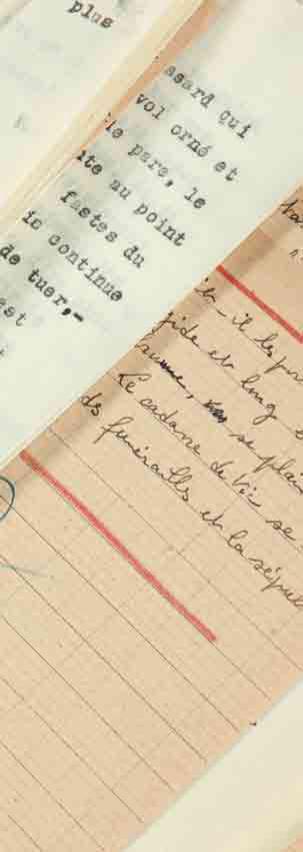 plus
asard qui
vol orné et
le parc, le
ite au point
fastes du
ic continue
de tuer,-
ast
it les
gide et long
se plai
Le cadavre de
se
ds funérailles et la sépul